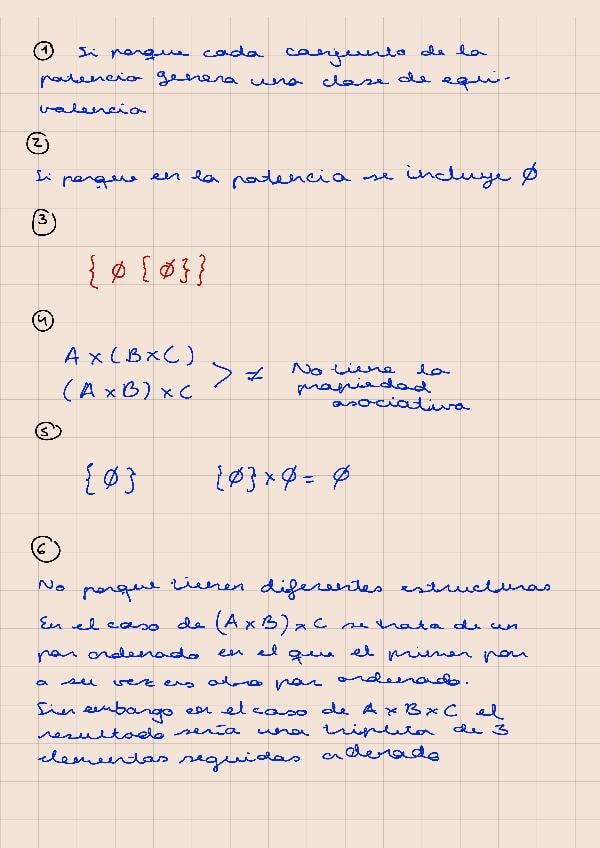 ① Si porque cada conjunto de la
potencia genera una clase de equi-
valencia
②
Si porque en la potencia se incluye ∅
③
{ ∅ { ∅ } }
④
A × ( B × C )
( A × B ) × C > ≠ No tiene la
propiedad
asociativa
⑤
{ ∅ } { ∅ } × ∅ = ∅
⑥
No porque tienen diferentes estructuras
En el caso de (A × B) × C se trata de un
par ordenado en el que el primer par
a su vez es otro par ordenado.
Sin embargo en el caso de A × B × C el
resultado sería una tripleta de 3
elementos seguidos ordenado